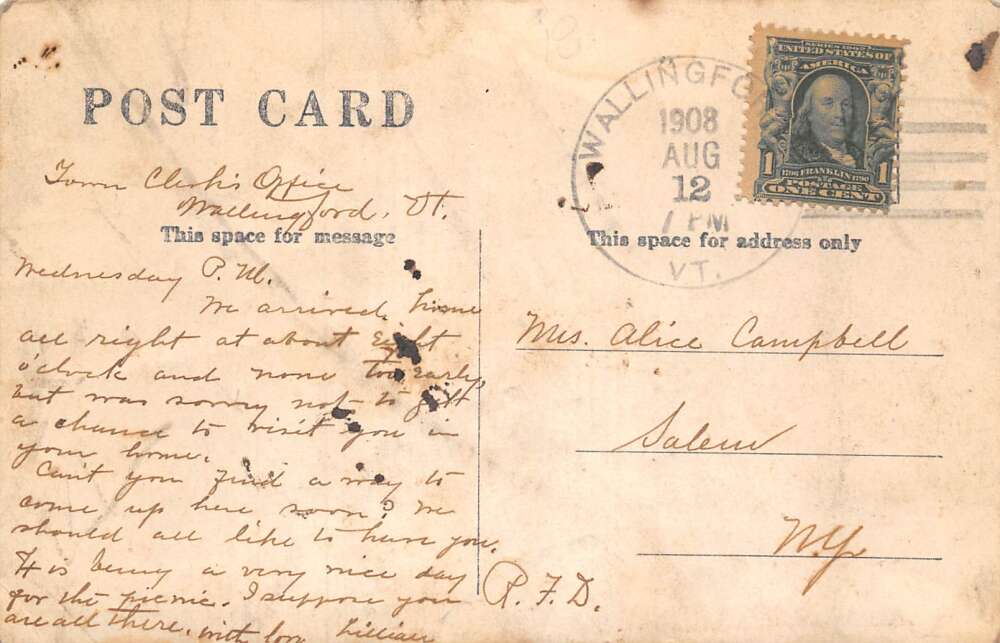 POST CARD
WALLINGFO
1908
AUG
12
7 PM
VT.
SERIES 1902
UNITED STATES OF
AMERICA
1 1790 FRANKLIN 1790 1
POSTAGE
ONE CENT
Town Clerk's Office
Wallingford, Vt.
This space for message
Wednesday P.M.
We arrived home
all right at about Eight
o'clock and none too early,
but was sorry not to get
a chance to visit you in
your home.
Can't you find a way to
come up here soon? We
should all like to have you.
It is being a very nice day
for the picnic. I suppose you
are all there. with love Lillian
This space for address only
Mrs. Alice Campbell
Salem
N.Y.
R.F.D.